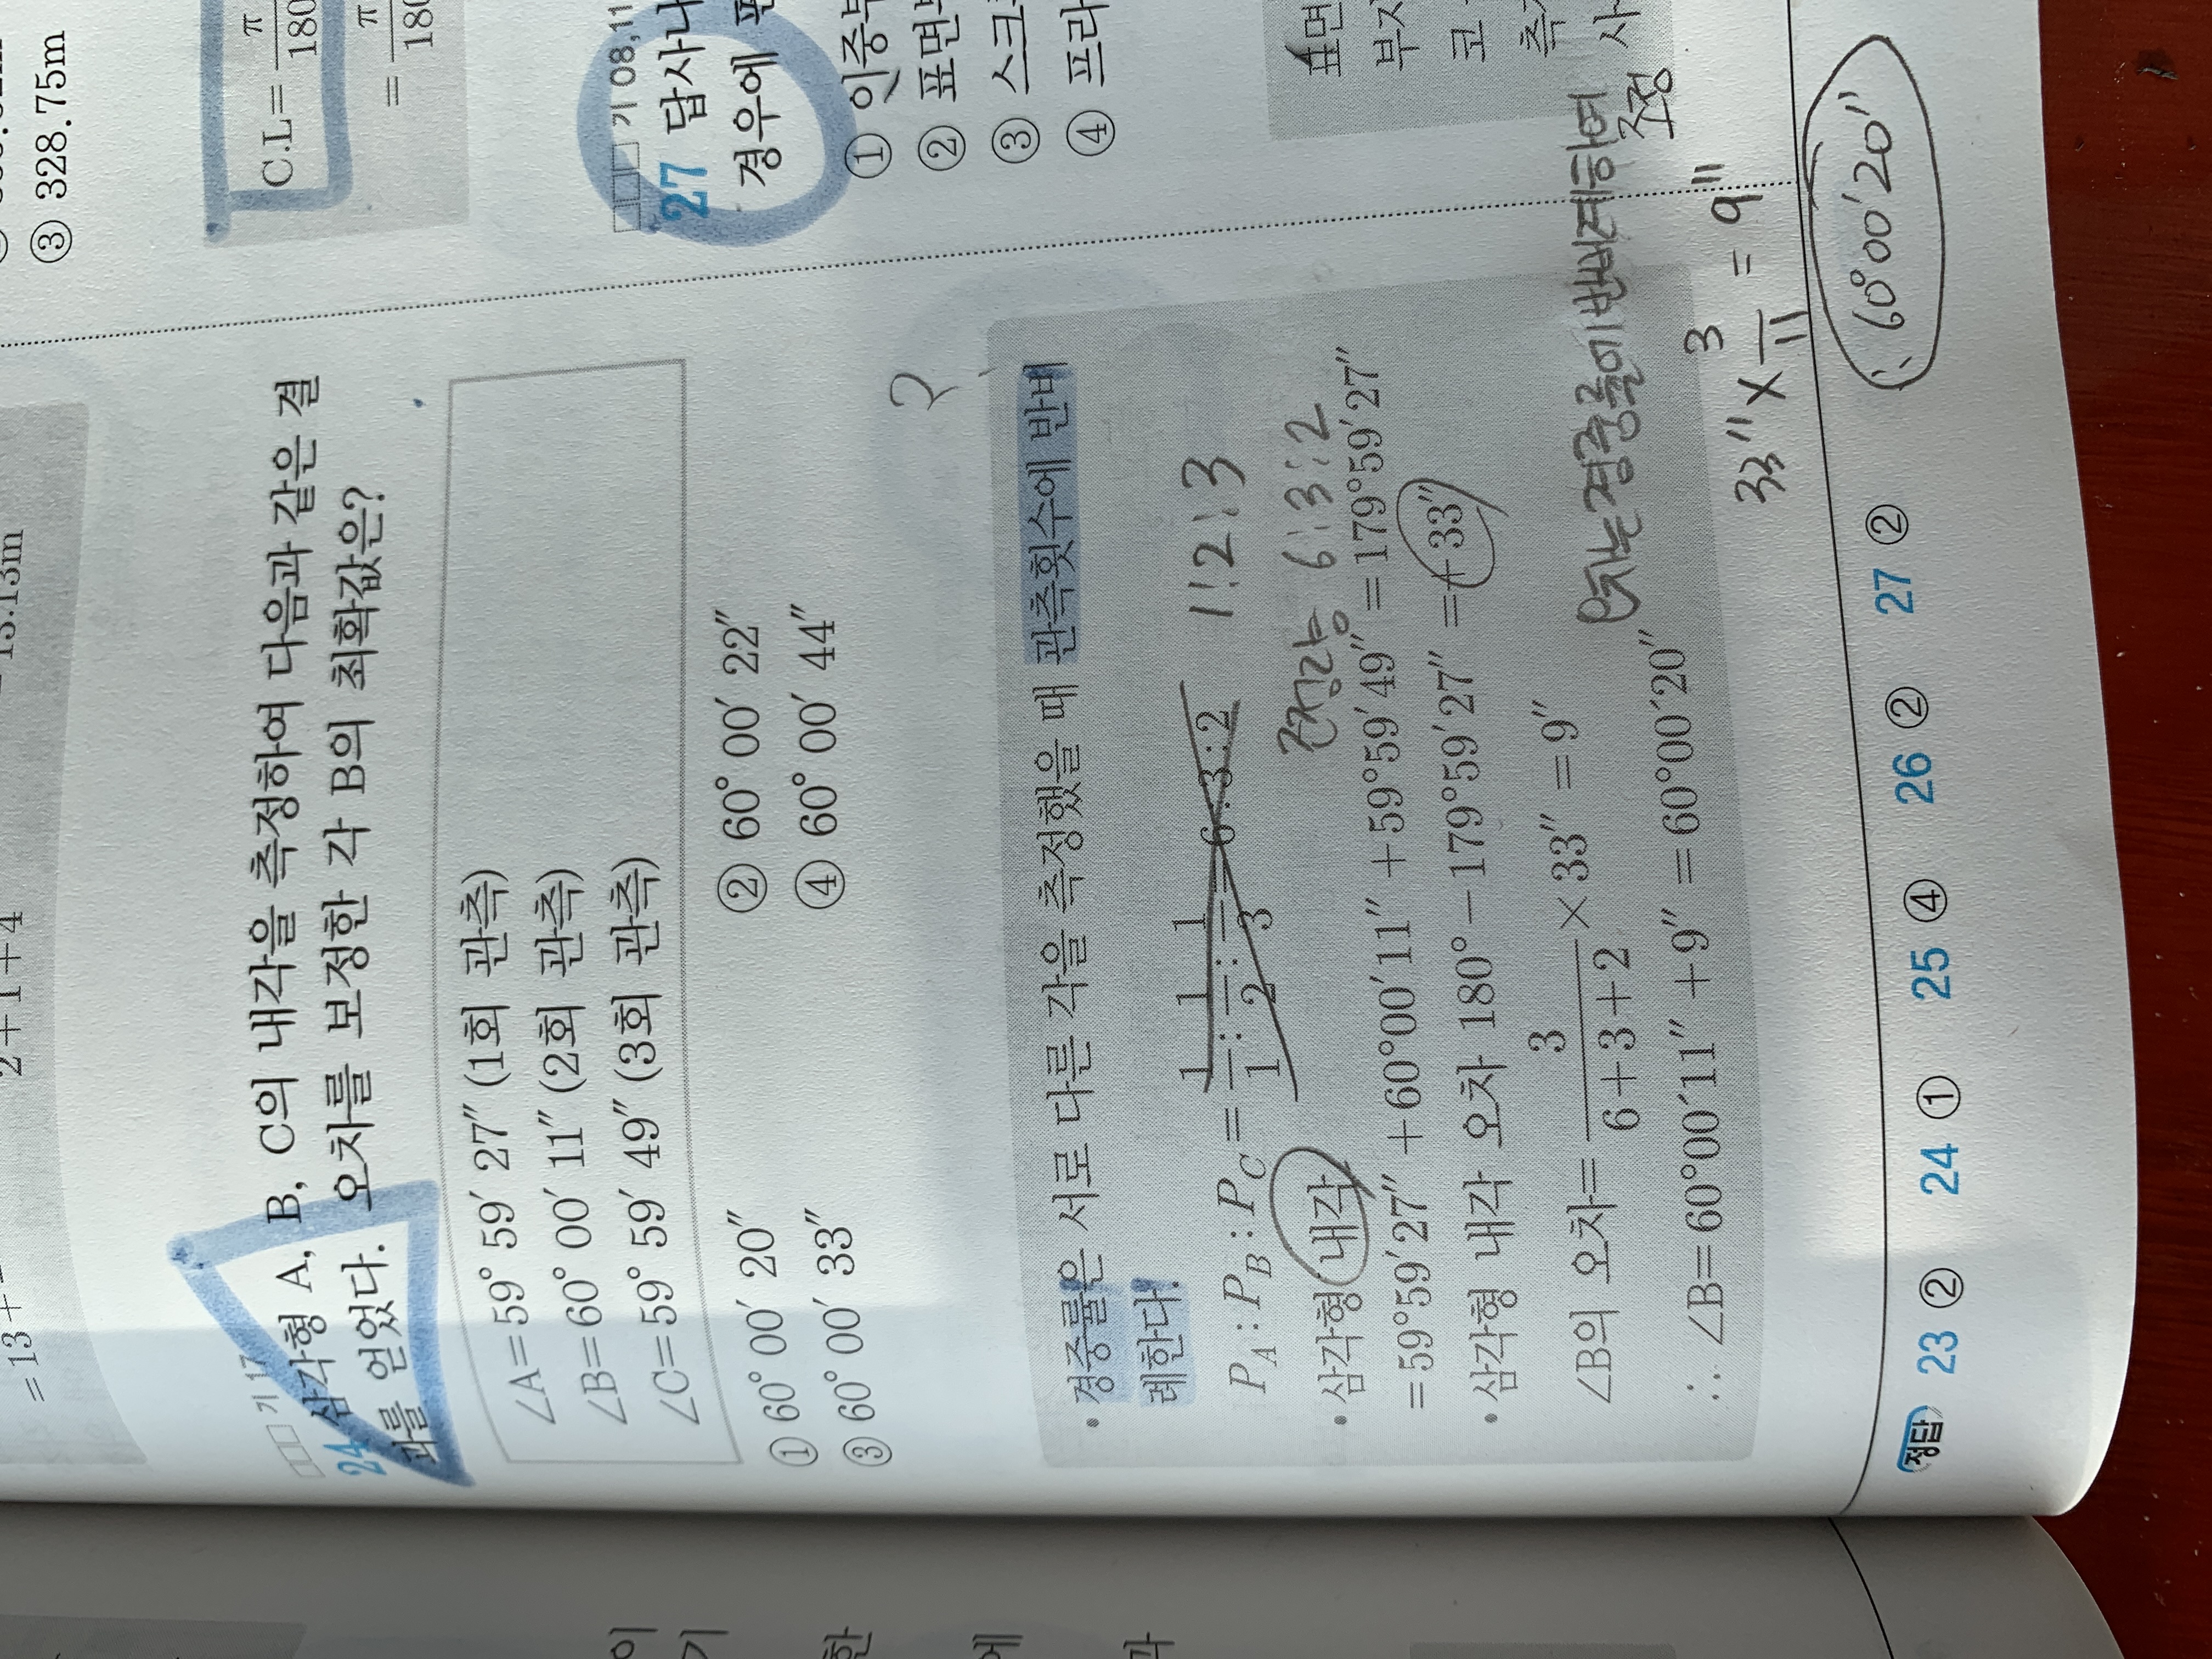 ③ 328.75m
2+1+4
=13+
□□□ 기 17
24 삼각형 A, B, C의 내각을 측정하여 다음과 같은 결
과를 얻었다. 오차를 보정한 각 B의 최확값은?
∠A=59° 59′ 27″ (1회 관측)
∠B=60° 00′ 11″ (2회 관측)
∠C=59° 59′ 49″ (3회 관측)
① 60° 00′ 20″ ② 60° 00′ 22″
③ 60° 00′ 33″ ④ 60° 00′ 44″
?
• 경중률은 서로 다른 각을 측정했을 때 관측횟수에 반비
례한다.
P_A : P_B : P_C = 1/1 : 1/2 : 1/3 = 6 : 3 : 2 1:2:3
조정량 6:3:2
• 삼각형 내각
=59°59′27″+60°00′11″+59°59′49″=179°59′27″
• 삼각형 내각 오차 180°−179°59′27″=+33″
∠B의 오차= 3/(6+3+2) ×33″=9″
오차는 경중률에 반비례하여
조정
∴ ∠B=60°00′11″+9″=60°00′20″
33″ × 3/11 = 9″
∴ 60°00′20″
C.L= π/180
= π/180
□□□ 기 08,11
27 답사나
경우에
① 이중부
② 표면부
③ 스크
④ 프라
표면
부자
코
측
사
정답 23 ② 24 ① 25 ④ 26 ② 27 ②